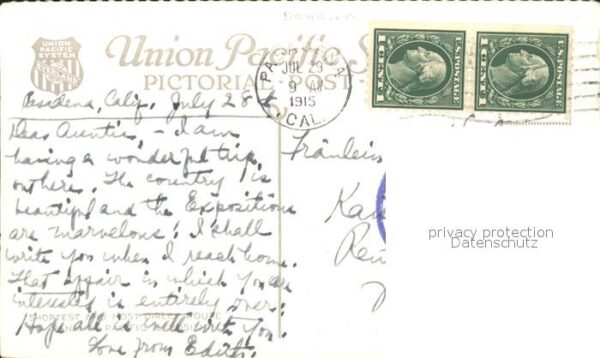 UNION
PACIFIC
SYSTEM
Union Pacific S
PICTORIAL POST
PA
JUL 29
9 AM
1915
CAL.
U.S. POSTAGE
1 CENT 1
U.S. POSTAGE
1 CENT 1
Pasadena, Calif. July 28
Dear Auntie, - I am
having a wonderful trip
out here. The country is
beautiful and the Expositions
are marvelous. I shall
write you when I reach home.
That affair in which you are
interested is entirely over.
SHORTEST AND MOST DIRECT ROUTE
Hope all is well with you.
Love from Edith.
Fräulein
privacy protection
Datenschutz